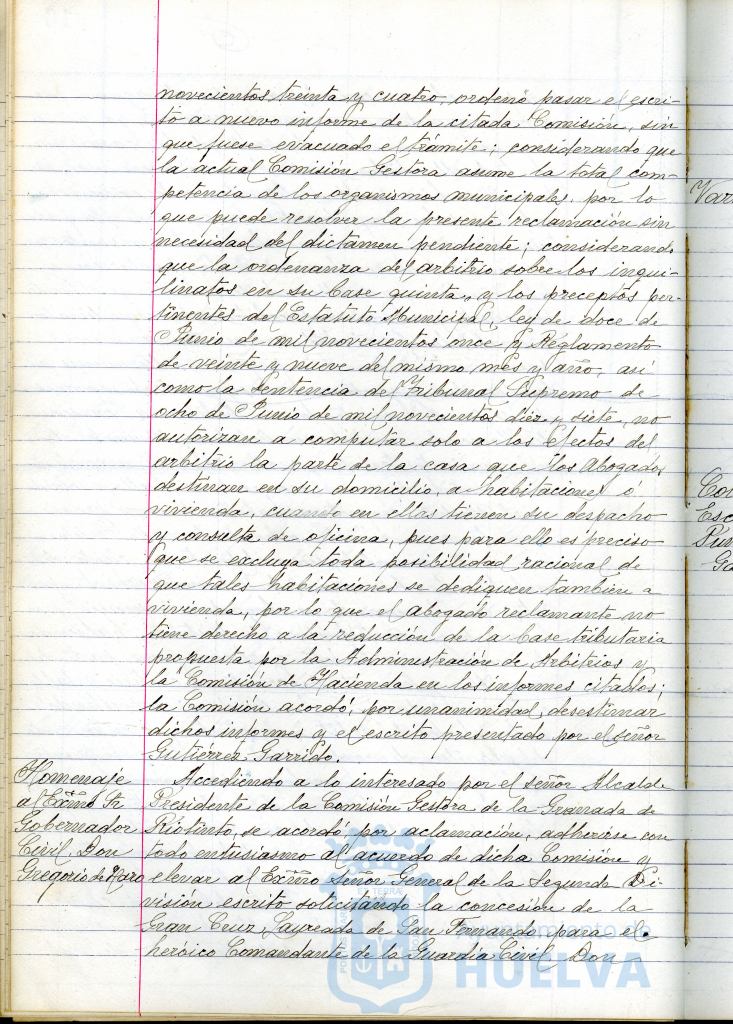 novecientos treinta y cuatro, ordenó pasar el escri-
to a nuevo informe de la citada Comisión, sin
que fuese evacuado el trámite; considerando que
la actual Comisión Gestora asume la total com-
petencia de los organismos municipales, por lo
que puede resolver la presente reclamación sin
necesidad del dictamen pendiente; considerando
que la ordenanza del arbitrio sobre los inqui-
linatos en su base quinta, y los preceptos per-
tinentes del Estatuto Municipal, ley de doce de
Junio de mil novecientos once y Reglamento
de veinte y nueve del mismo mes y año, así
como la Sentencia del Tribunal Supremo de
ocho de Junio de mil novecientos diez y siete, no
autorizan a computar solo a los efectos del
arbitrio la parte de la casa que los Abogados
destinan en su domicilio, a habitaciones o
vivienda, cuando en ellas tienen su despacho
y consulta de oficina, pues para ello es preciso
que se excluya toda posibilidad racional de
que tales habitaciones se dediquen también a
vivienda, por lo que el abogado reclamante no
tiene derecho a la reducción de la base tributaria
propuesta por la Administración de Arbitrios y
la Comisión de Hacienda en los informes citados;
la Comisión acordó, por unanimidad, desestimar
dichos informes y el escrito presentado por el señor
Gutiérrez Garrido.
Homenaje
al Excmo Sr
Gobernador
Civil Don
Gregorio de Haro
Accediendo a lo interesado por el señor Alcalde
Presidente de la Comisión Gestora de la Granada de
Riotinto, se acordó, por aclamación, adherirse con
todo entusiasmo al acuerdo de dicha Comisión y
elevar al Excmo Señor General de la Segunda Di-
visión escrito solicitando la concesión de la
Gran Cruz Laureada de San Fernando para el
heróico Comandante de la Guardia Civil Don
HUELVA